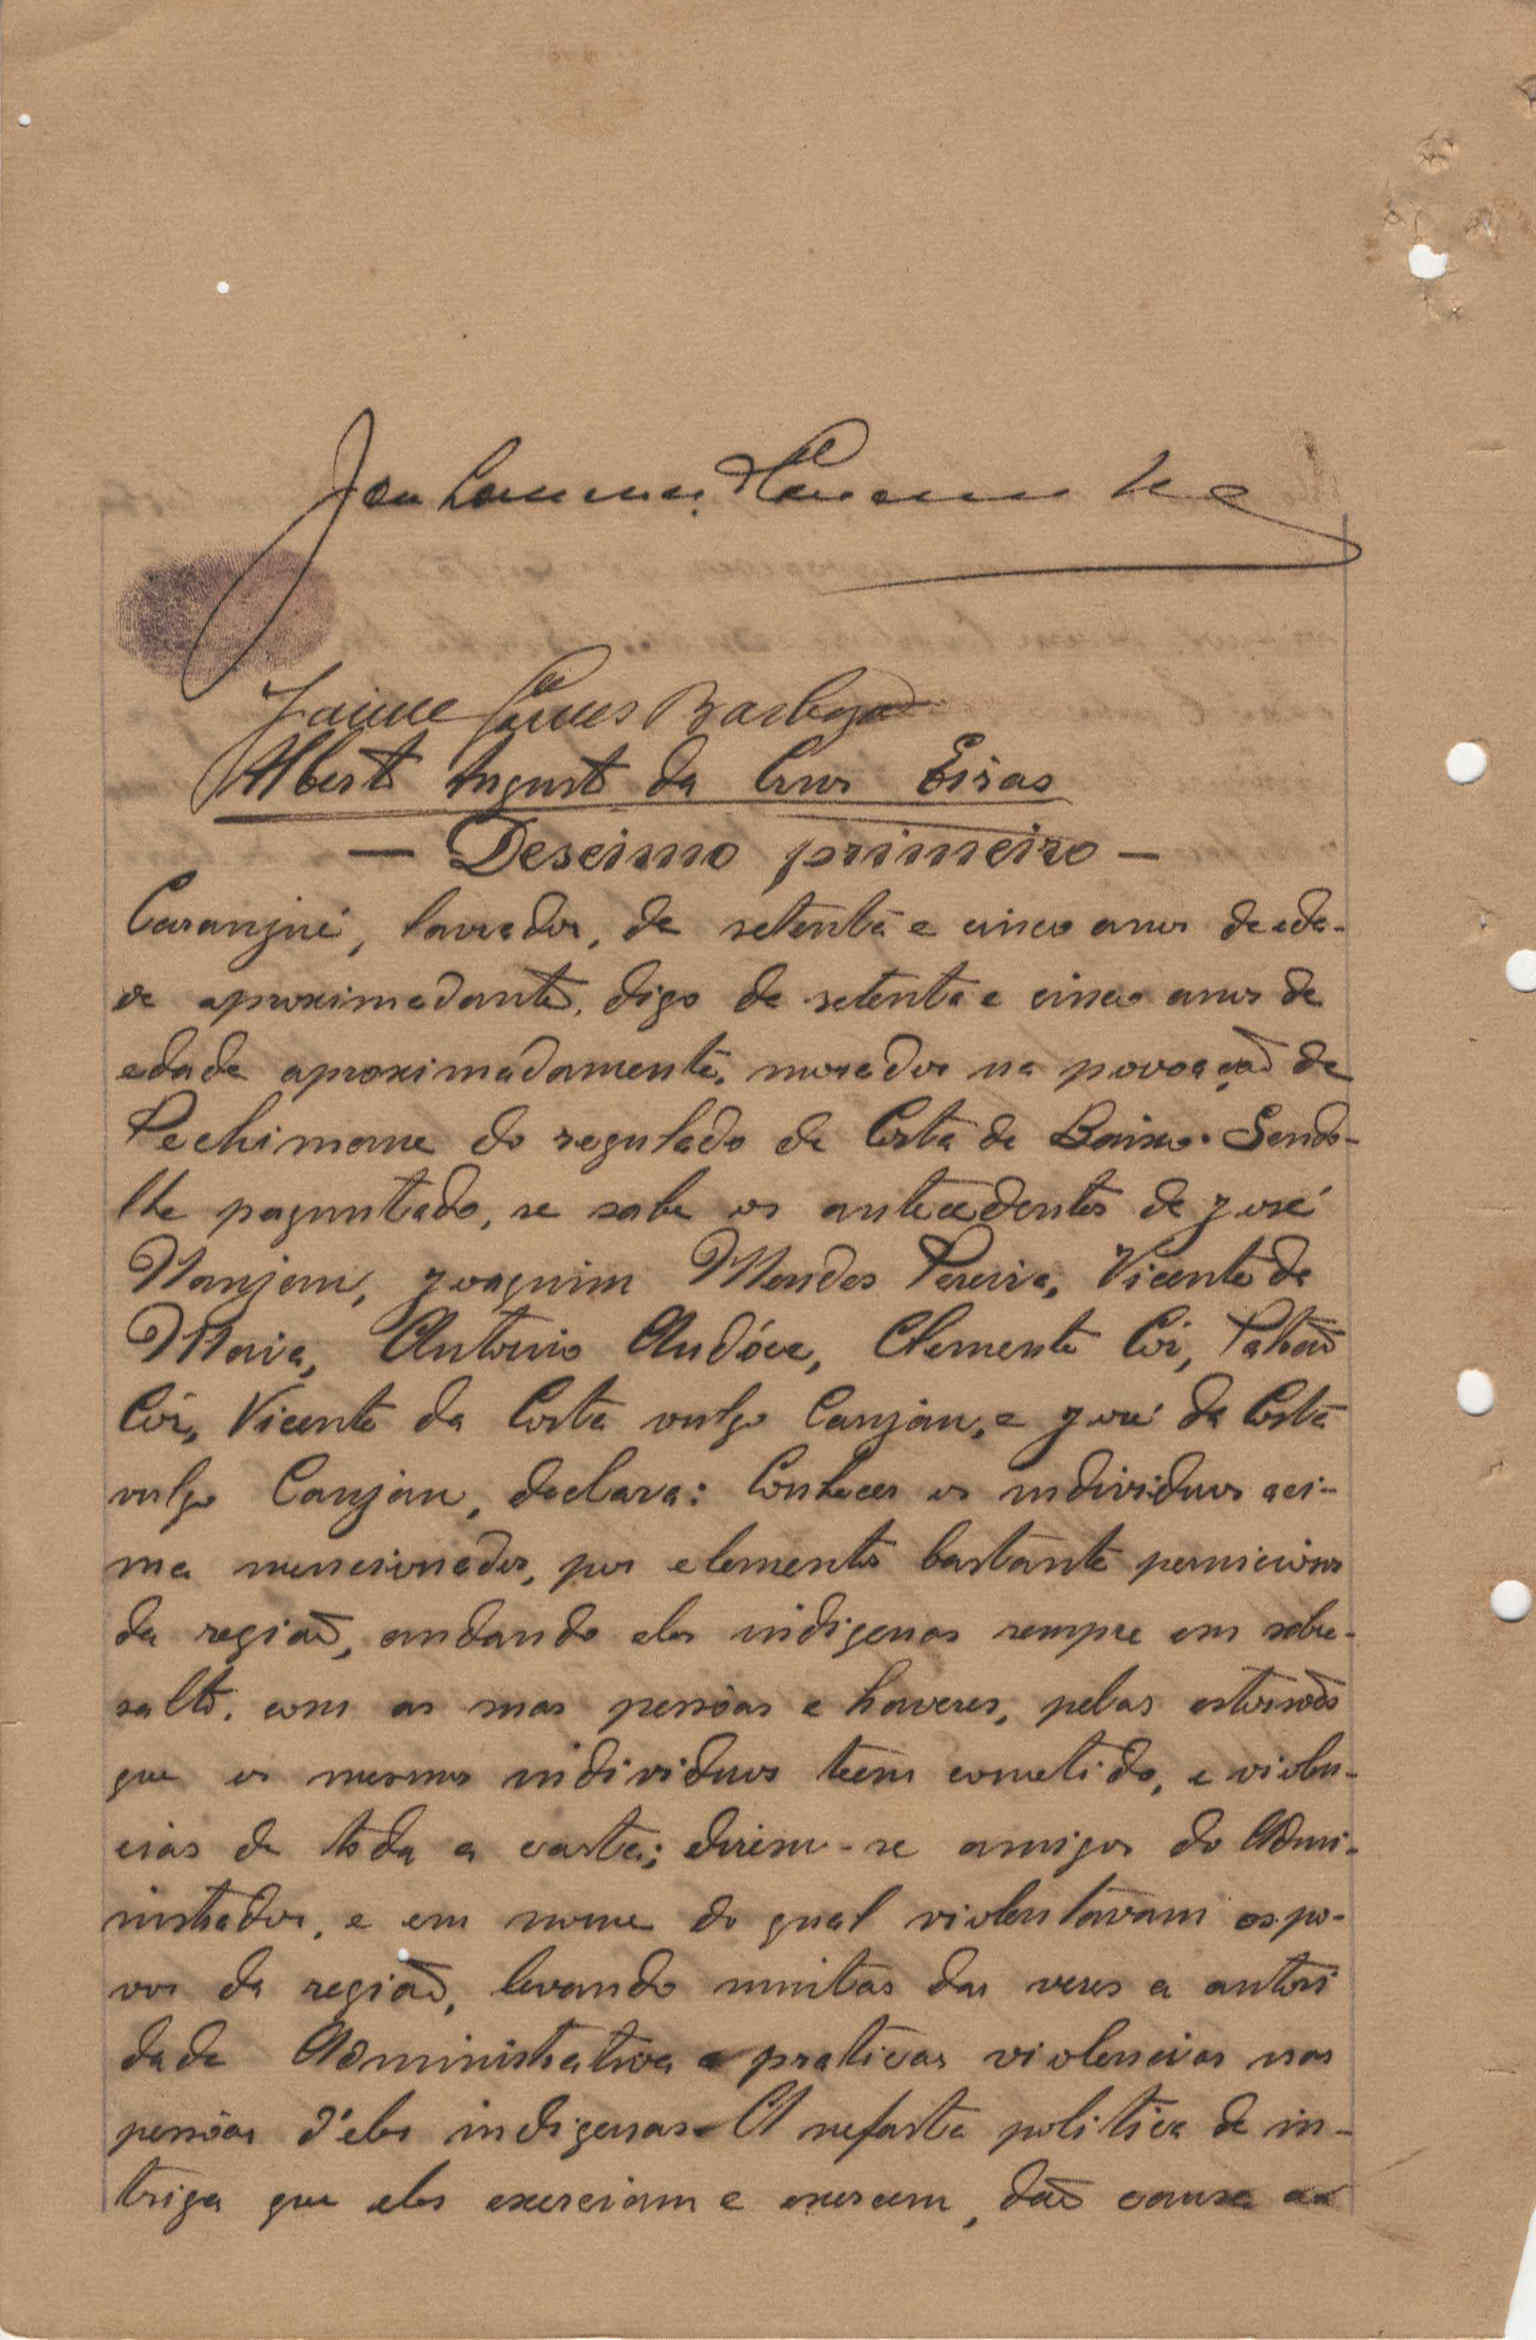 Jaime Gomes Barbosa
Alberto Augusto da Cruz Eiras
— Deseimo primeiro —
Caranjuí, lavrador, de setenta e cinco anos de eda-
de aproximadante, digo de setenta e cinco anos de
edade aproximadamente, morador na povoação de
Pechimane do regulado da Costa de Baixo. Sendo-
lhe preguntado, se sabe os antecedentes de José
Nanjam, Joaquim Mendes Pereira, Vicente da
Maia, Antonio Andóce, Clemente Có, Patrão
Có, Vicente da Costa vulgo Canjau, e José da Costa
vulgo Canjau, declara: Conhecer os individuos aci-
ma mencionados, por elementos bastante perniciosos
da região, andando eles indigenas sempre em sobre-
salto, com as suas pessôas e haveres, pelas estorsões
que os mesmos individuos teem cometido, e violen-
cias de toda a casta; diziem-se amigos do Admi-
nistrador, e em nome do qual violentavam os po-
vos da região, levando muitas das vezes a autori
dade Administrativa a praticar violencias nas
pessôas d'eles indigenas. A nefasta politica de in-
triga que eles exerciam e exercem, dão causa aa